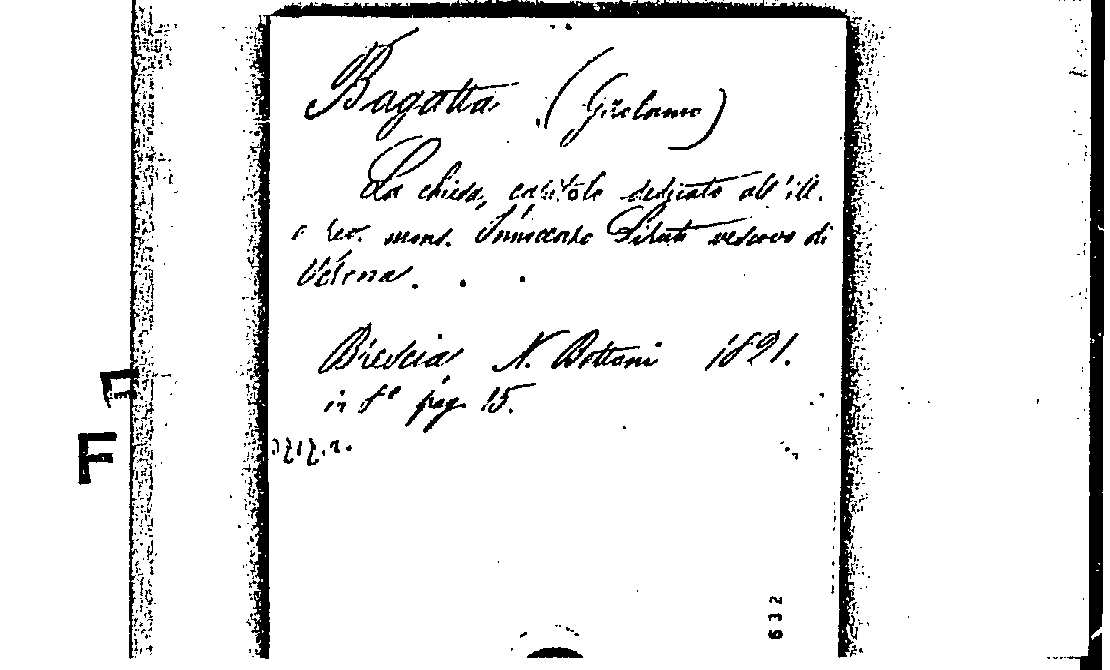 Bagatta (Girolamo)
La chiesa, capitolo dedicato all'ill.
e rev. mons. Innocenzo Liruti vescovo di
Verona. . .
Brescia N. Bettoni 1821.
in 8° pag. 15.
632
F
F